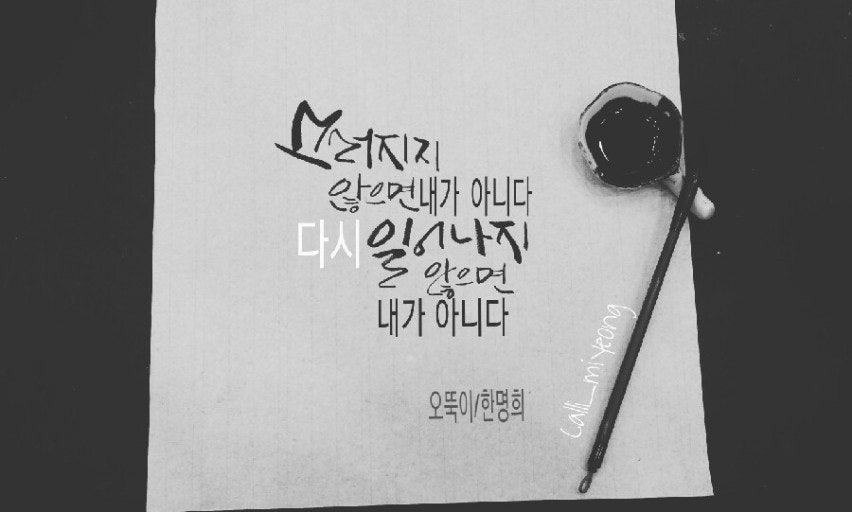 쓰러지지
않으면내가 아니다
다시 일어나지
않으면
내가 아니다
오뚝이/한명희
calli_miyeong